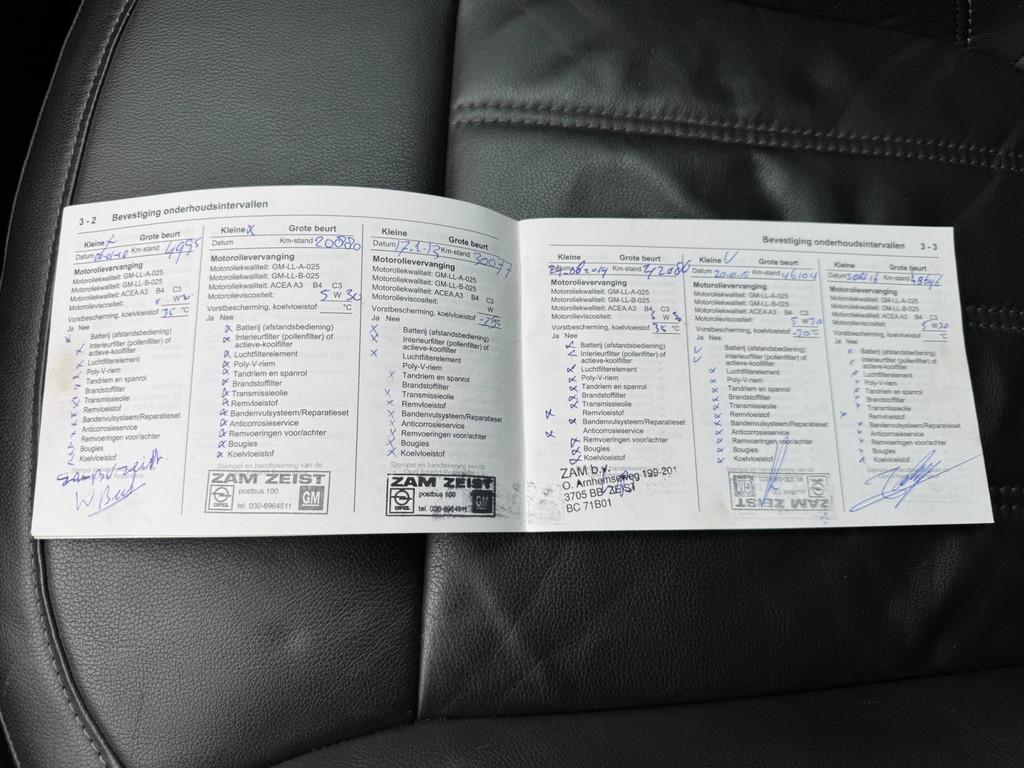 3 - 2 Bevestiging onderhoudsintervallen
Kleine Grote beurt
Datum Km-stand 4995
Motorolievervanging
Motoroliekwaliteit: GM-LL-A-025
Motoroliekwaliteit: GM-LL-B-025
Motoroliekwaliteit: ACEA A3 B4 C3
Motorolieviscositeit: W 30
Vorstbescherming, koelvloeistof 35 °C
Ja Nee
Batterij (afstandsbediening)
Interieurfilter (pollenfilter) of
actieve-koolfilter
Luchtfilterelement
Poly-V-riem
Tandriem en spanrol
Brandstoffilter
Transmissieolie
Remvloeistof
Bandenvulsysteem/Reparatieset
Anticorrosieservice
Remvoeringen voor/achter
Bougies
Koelvloeistof
Kleine x Grote beurt
Datum Km-stand 20980
Motorolievervanging
Motoroliekwaliteit: GM-LL-A-025
Motoroliekwaliteit: GM-LL-B-025
Motoroliekwaliteit: ACEA A3 B4 C3
Motorolieviscositeit: 5 W 30
Vorstbescherming, koelvloeistof °C
Ja Nee
Batterij (afstandsbediening)
Interieurfilter (pollenfilter) of
actieve-koolfilter
Luchtfilterelement
Poly-V-riem
Tandriem en spanrol
Brandstoffilter
Transmissieolie
Remvloeistof
Bandenvulsysteem/Reparatieset
Anticorrosieservice
Remvoeringen voor/achter
Bougies
Koelvloeistof
Stempel en handtekening van de
ZAM ZEIST
postbus 100
OPEL GM
tel. 030-6964511
Kleine Grote beurt
Datum 12.1-13 Km-stand 30077
Motorolievervanging
Motoroliekwaliteit: GM-LL-A-025
Motoroliekwaliteit: GM-LL-B-025
Motoroliekwaliteit: ACEA A3 B4 C3
Motorolieviscositeit: W
Vorstbescherming, koelvloeistof -25 °C
Ja Nee
Batterij (afstandsbediening)
Interieurfilter (pollenfilter) of
actieve-koolfilter
Luchtfilterelement
Poly-V-riem
Tandriem en spanrol
Brandstoffilter
Transmissieolie
Remvloeistof
Bandenvulsysteem/Reparatieset
Anticorrosieservice
Remvoeringen voor/achter
Bougies
Koelvloeistof
Stempel en handtekening van de
ZAM ZEIST
postbus 100
OPEL GM
tel. 030-6964511
Bevestiging onderhoudsintervallen 3 - 3
Kleine Grote beurt
Km-stand
Motorolievervanging
Motoroliekwaliteit: GM-LL-A-025
Motoroliekwaliteit: GM-LL-B-025
Motoroliekwaliteit: ACEA A3 B4 C3
Motorolieviscositeit: W 30
Vorstbescherming, koelvloeistof 35 °C
Ja Nee
Batterij (afstandsbediening)
Interieurfilter (pollenfilter) of
actieve-koolfilter
Luchtfilterelement
Poly-V-riem
Tandriem en spanrol
Brandstoffilter
Transmissieolie
Remvloeistof
Bandenvulsysteem/Reparatieset
Anticorrosieservice
Remvoeringen voor/achter
Bougies
Koelvloeistof
ZAM b.v.
O. Arnhemseweg 199-201
3705 BB ZEIST
BC 71B01
Kleine V Grote beurt
Datum 20-10-15 Km-stand 46104
Motorolievervanging
Motoroliekwaliteit: GM-LL-A-025
Motoroliekwaliteit: GM-LL-B-025
Motoroliekwaliteit: ACEA A3 B4 C3
Motorolieviscositeit: 5 W 30
Vorstbescherming, koelvloeistof -30 °C
Ja Nee
Batterij (afstandsbediening)
Interieurfilter (pollenfilter) of
actieve-koolfilter
Luchtfilterelement
Poly-V-riem
Tandriem en spanrol
Brandstoffilter
Transmissieolie
Remvloeistof
Bandenvulsysteem/Reparatieset
Anticorrosieservice
Remvoeringen voor/achter
Bougies
Koelvloeistof
ZAM ZEIST
Kleine Grote beurt
Datum Km-stand
Motorolievervanging
Motoroliekwaliteit: GM-LL-A-025
Motoroliekwaliteit: GM-LL-B-025
Motoroliekwaliteit: ACEA A3 B4 C3
Motorolieviscositeit: 5 W 30
Vorstbescherming, koelvloeistof °C
Ja Nee
Batterij (afstandsbediening)
Interieurfilter (pollenfilter) of
actieve-koolfilter
Luchtfilterelement
Poly-V-riem
Tandriem en spanrol
Brandstoffilter
Transmissieolie
Remvloeistof
Bandenvulsysteem/Reparatieset
Anticorrosieservice
Remvoeringen voor/achter
Bougies
Koelvloeistof